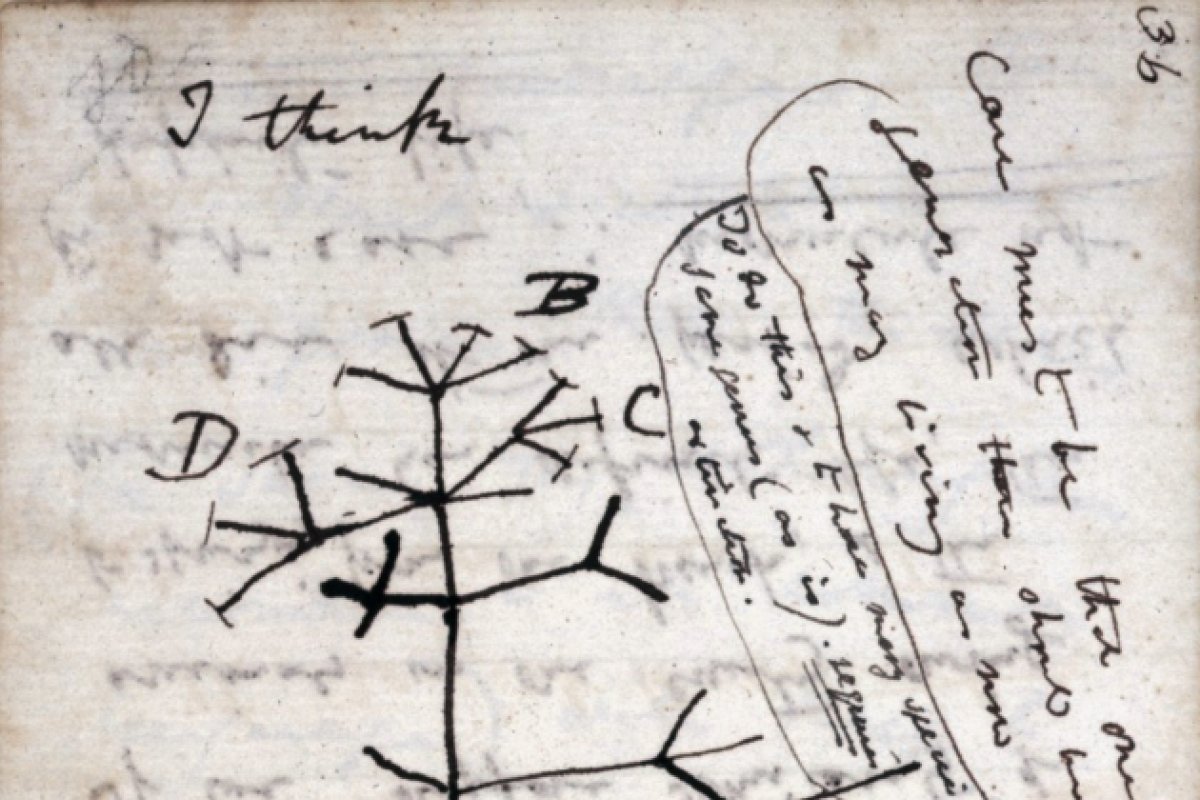 36
I think
B
C
D
Case must be that one
generation then should be
as many living as now
To do this & to have many species
same genus (as is). requires
extinction.